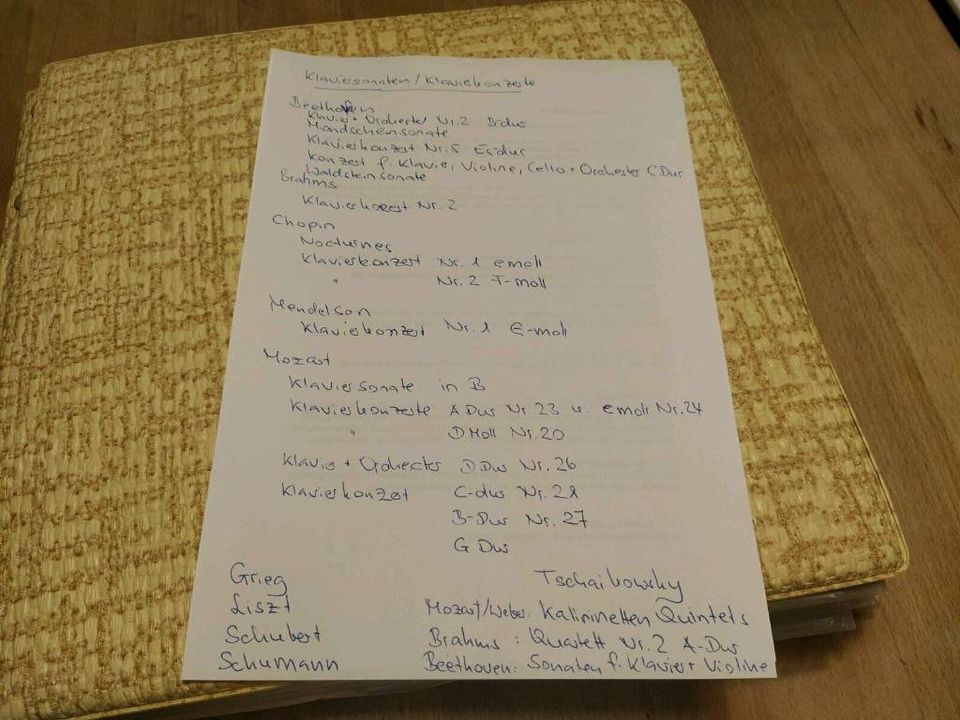 Klaviersonaten/Klavierkonzerte
Beethoven
Klavier + Orchester Nr. 2 B-dur
Mondscheinsonate
Klavierkonzert Nr. 5 Es-dur
Konzert f. Klavier, Violine, Cello + Orchester C Dur
Waldsteinsonate
Brahms
Klavierkonzert Nr. 2
Chopin
Nocturnes
Klavierkonzert Nr. 1 e moll
" Nr. 2 F-moll
Mendelson
Klavierkonzert Nr. 1 E-moll
Mozart
Klaviersonate in B
Klavierkonzerte A Dur Nr. 23 u. e moll Nr. 24
" D Moll Nr. 20
Klavier + Orchester D Dur Nr. 26
Klavierkonzert C-dur Nr. 21
B-Dur Nr. 27
G Dur
Grieg
Liszt
Schubert
Schumann
Tschaikowsky
Mozart/Weber: Kalirinetten Quintets
Brahms: Quartett Nr. 2 A-Dur
Beethoven: Sonaten f. Klavier + Violine